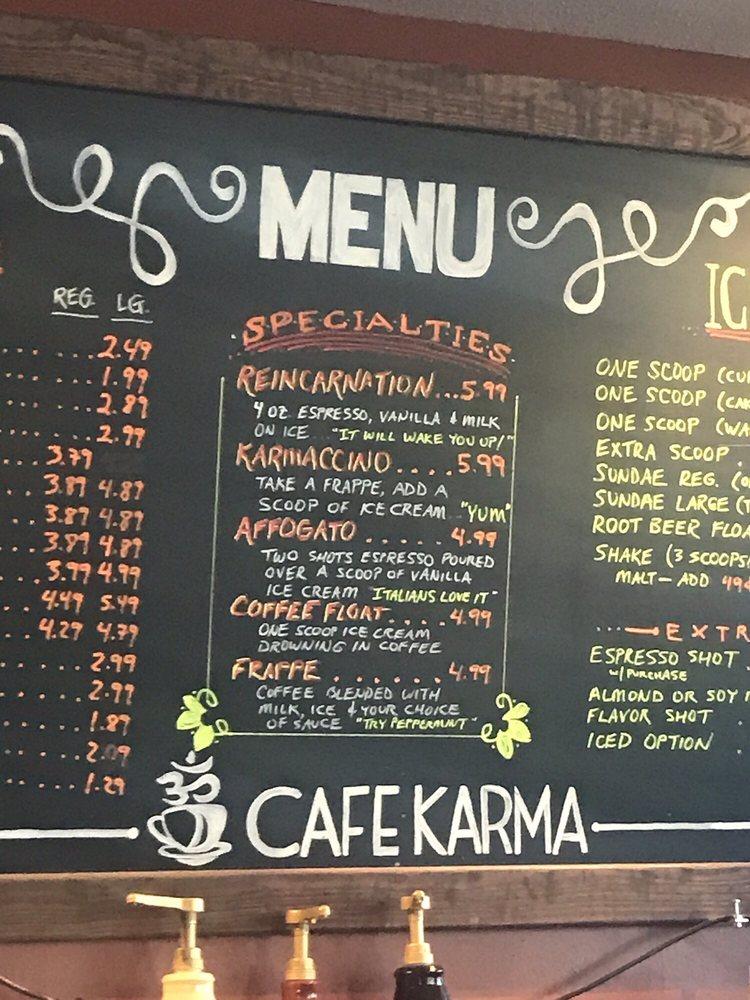 MENU
REG. LG.
2.49
1.99
2.89
2.99
3.79
3.89 4.89
3.89 4.89
3.89 4.89
3.99 4.99
4.49 5.49
4.29 4.79
2.99
2.99
1.89
2.09
1.29
SPECIALTIES
REINCARNATION...5.99
4 OZ. ESPRESSO, VANILLA & MILK
ON ICE... "IT WILL WAKE YOU UP!"
KARMACCINO....5.99
TAKE A FRAPPE, ADD A
SCOOP OF ICE CREAM "YUM"
AFFOGATO......4.99
TWO SHOTS ESPRESSO POURED
OVER A SCOOP OF VANILLA
ICE CREAM "ITALIANS LOVE IT"
COFFEE FLOAT....4.99
ONE SCOOP ICE CREAM
DROWNING IN COFFEE
FRAPPE.......4.99
COFFEE BLENDED WITH
MILK, ICE & YOUR CHOICE
OF SAUCE "TRY PEPPERMINT"
ONE SCOOP
ONE SCOOP
ONE SCOOP
EXTRA SCOOP
SUNDAE REG.
SUNDAE LARGE
ROOT BEER
SHAKE (3 SCOOPS
MALT-ADD
ESPRESSO SHOT
W/ PURCHASE
ALMOND OR SOY
FLAVOR SHOT
ICED OPTION
CAFE KARMA